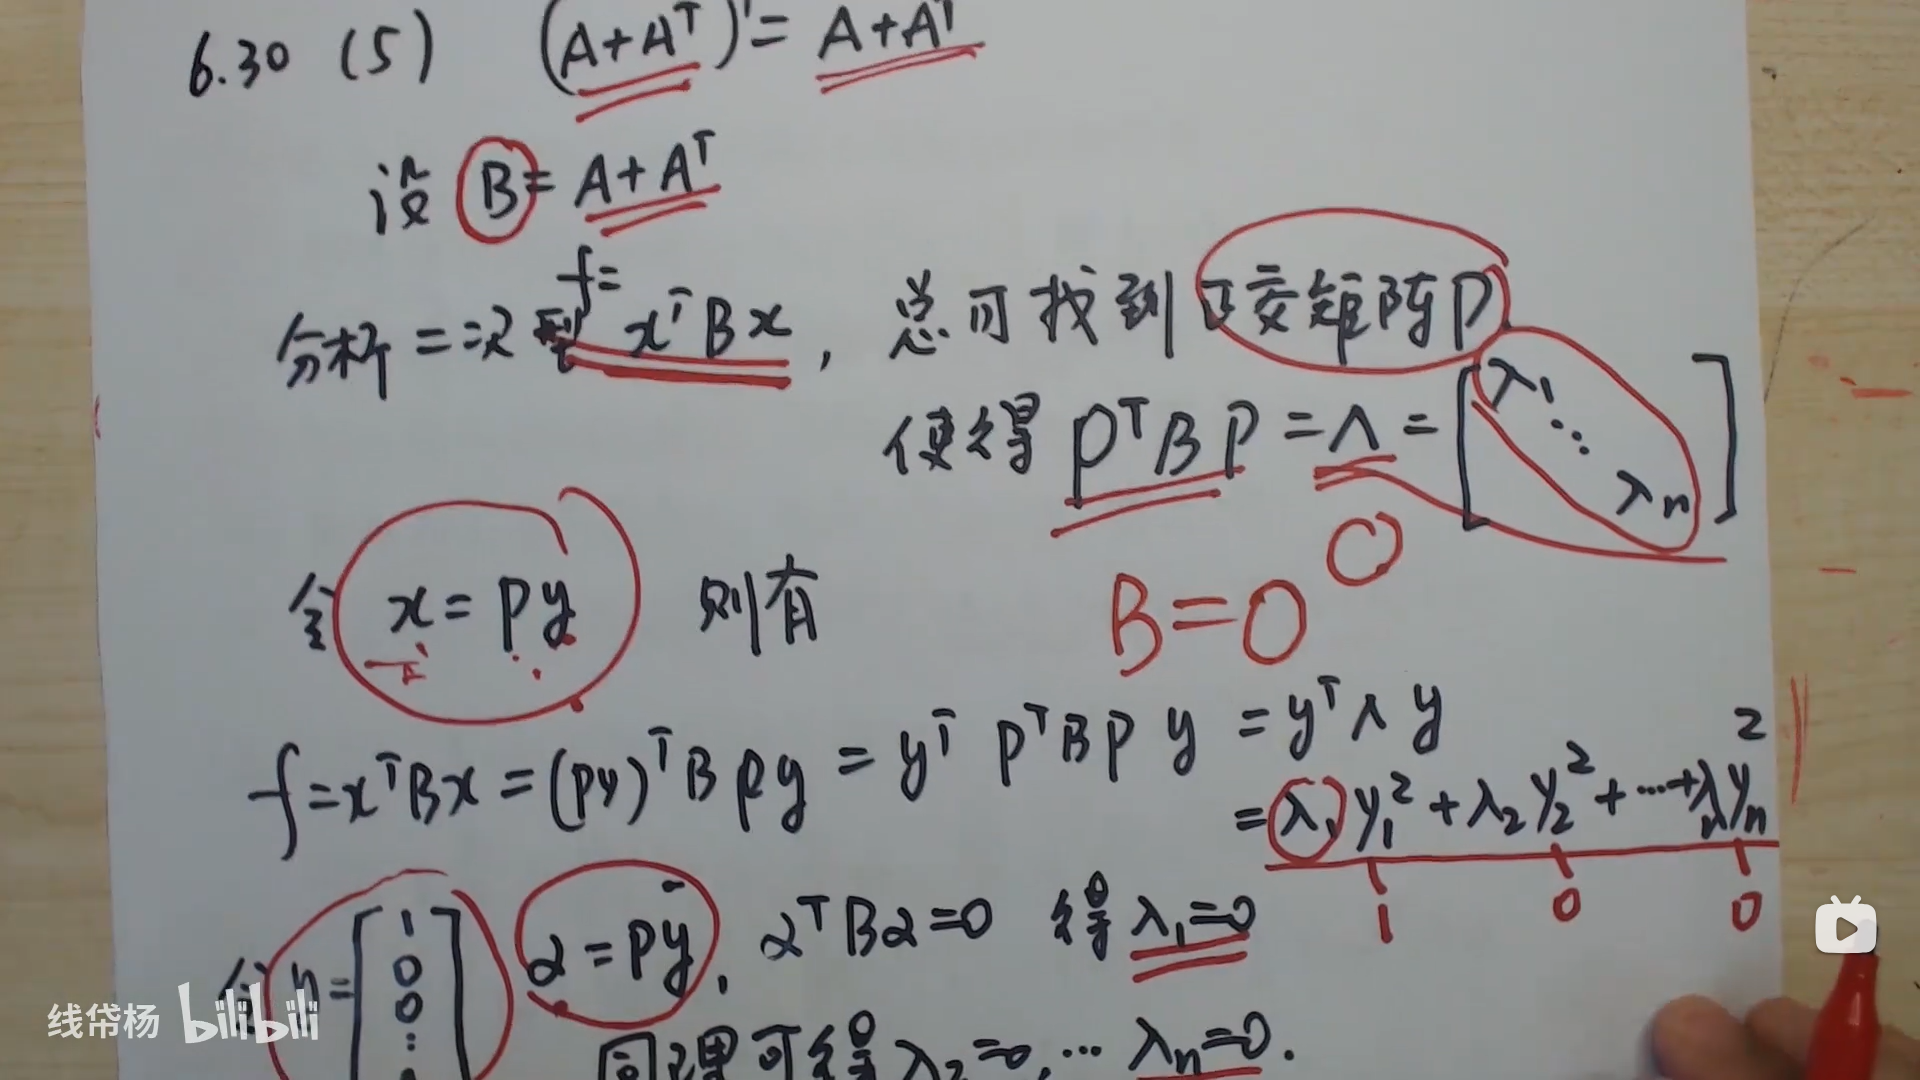 6.30 (5) (A+Aᵀ)ᵀ= A+Aᵀ
设 B = A+Aᵀ
分析二次型 f= xᵀBx, 总可找到正交矩阵P
使得 PᵀBP = Λ = [λ₁ ⋱ λn]
令 x = Py 则有
B=0 0
f=xᵀBx = (Py)ᵀBPy = yᵀPᵀBPy = yᵀΛy
= λ₁y₁² + λ₂y₂² + ⋯ + λnyn²
1 0 0
令 y= [1 0 0 ⋮ α = Py, αᵀBα=0 得 λ₁=0
同理可得 λ₂=0, ⋯ λn=0.
线帒杨 bilibili